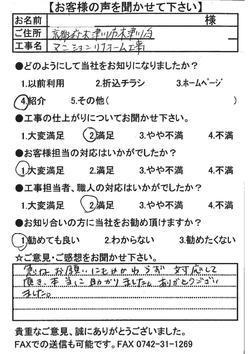 【お客様の声を聞かせて下さい】
お名前 様
ご住所 京都府木津川市木津川台
工事名 マンションリフォーム工事
●どのようにして当社をお知りになりましたか?
1.以前利用 2.折込チラシ 3.ホームページ
4.紹介 5.その他( )
●工事の仕上がりについてお聞かせ下さい。
1.大変満足 2.満足 3.やや不満 4.不満
●お客様担当の対応はいかがでしたか?
1.大変満足 2.満足 3.やや不満 4.不満
●工事担当者、職人の対応はいかがでしたか?
1.大変満足 2.満足 3.やや不満 4.不満
●お知り合いの方に当社をお勧め頂けますか?
1.勧めても良い 2.わからない 3.勧めたくない
☆ご意見・ご感想をお聞かせ下さい。
急なお願いにもかかわらず 対応して
頂き、本当に助かりました。ありがとうござい
ました。
貴重なご意見、誠にありがとうございました。
FAXでの送信も可能です。FAX 0742-31-1269